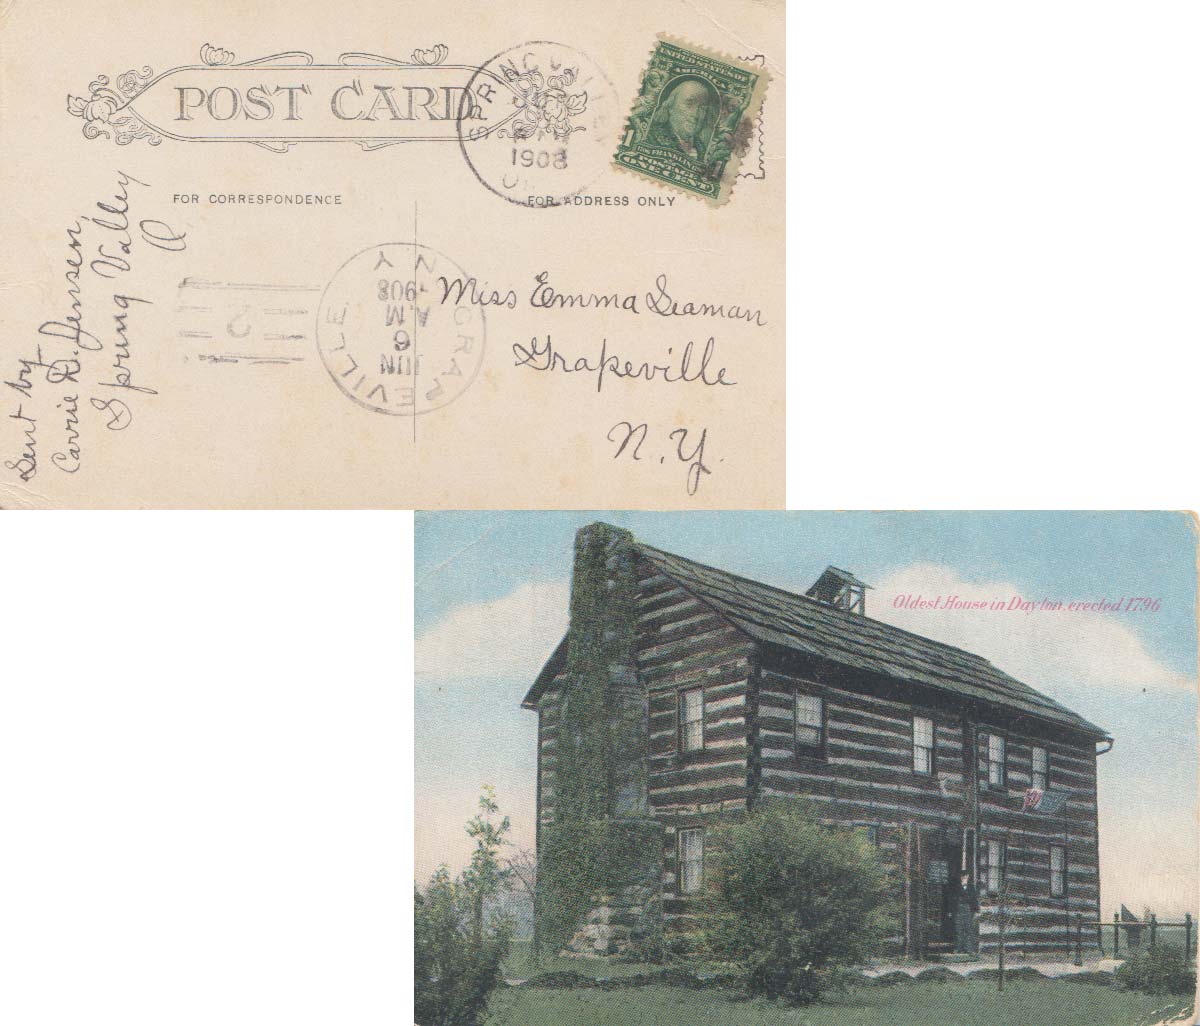 POST CARD
SPRING VALLEY
1908
O.
UNITED STATES OF
AMERICA
1
1
FRANKLIN
POSTAGE
ONE CENT
FOR CORRESPONDENCE
FOR ADDRESS ONLY
Sent by
Carrie D. Jensen,
Spring Valley
O
GRAPEVILLE
N.Y.
JUN
6
A.M
1908
2
Miss Emma Seaman
Grapeville
N.Y.
Oldest House in Dayton, erected 1796